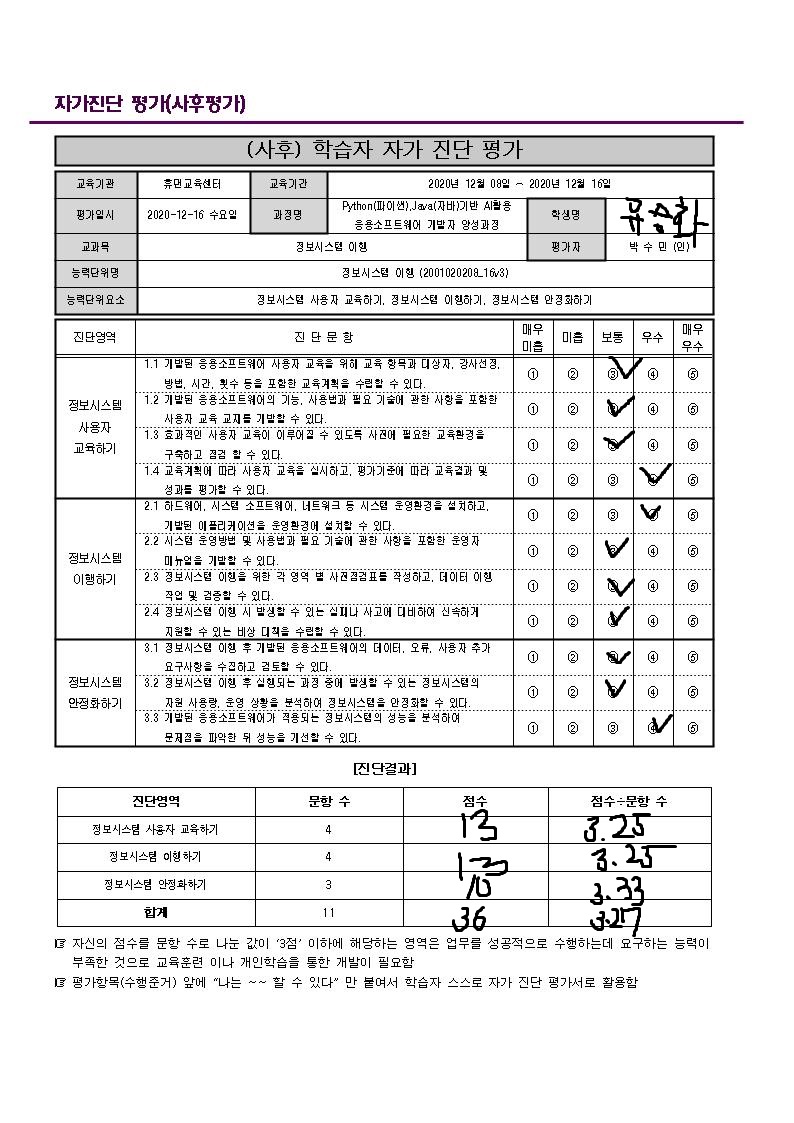 자가진단 평가(사후평가)
(사후) 학습자 자가 진단 평가
교육기관 휴먼교육센터 교육기간 2020년 12월 08일 ~ 2020년 12월 16일
평가일시 2020-12-16 수요일 과정명 Python(파이썬),Java(자바)기반 AI활용 응용소프트웨어 개발자 양성과정 학생명 유승화
교과목 정보시스템 이행 평가자 박 수 민 (인)
능력단위명 정보시스템 이행 (2001020208_16v3)
능력단위요소 정보시스템 사용자 교육하기, 정보시스템 이행하기, 정보시스템 안정화하기
진단영역 진 단 문 항 매우 미흡 미흡 보통 우수 매우 우수
정보시스템 사용자 교육하기
1.1 개발된 응용소프트웨어 사용자 교육을 위해 교육 항목과 대상자, 강사선정,
방법, 시간, 횟수 등을 포함한 교육계획을 수립할 수 있다. ① ② ③ ④ ⑤
1.2 개발된 응용소프트웨어의 기능, 사용법과 필요 기술에 관한 사항을 포함한
사용자 교육 교재를 개발할 수 있다. ① ② ③ ④ ⑤
1.3 효과적인 사용자 교육이 이루어질 수 있도록 사전에 필요한 교육환경을
구축하고 점검 할 수 있다. ① ② ③ ④ ⑤
1.4 교육계획에 따라 사용자 교육을 실시하고, 평가기준에 따라 교육결과 및
성과를 평가할 수 있다. ① ② ③ ④ ⑤
정보시스템 이행하기
2.1 하드웨어, 시스템 소프트웨어, 네트워크 등 시스템 운영환경을 설치하고,
개발된 애플리케이션을 운영환경에 설치할 수 있다. ① ② ③ ④ ⑤
2.2 시스템 운영방법 및 사용법과 필요 기술에 관한 사항을 포함한 운영자
매뉴얼을 개발할 수 있다. ① ② ③ ④ ⑤
2.3 정보시스템 이행을 위한 각 영역 별 사전점검표를 작성하고, 데이터 이행
작업 및 검증할 수 있다. ① ② ③ ④ ⑤
2.4 정보시스템 이행 시 발생할 수 있는 실패나 사고에 대비하여 신속하게
지원할 수 있는 비상 대책을 수립할 수 있다. ① ② ③ ④ ⑤
정보시스템 안정화하기
3.1 정보시스템 이행 후 개발된 응용소프트웨어의 데이터, 오류, 사용자 추가
요구사항을 수집하고 검토할 수 있다. ① ② ③ ④ ⑤
3.2 정보시스템 이행 후 실행되는 과정 중에 발생할 수 있는 정보시스템의
자원 사용량, 운영 상황을 분석하여 정보시스템을 안정화할 수 있다. ① ② ③ ④ ⑤
3.3 개발된 응용소프트웨어가 적용되는 정보시스템의 성능을 분석하여
문제점을 파악한 뒤 성능을 개선할 수 있다. ① ② ③ ④ ⑤
[진단결과]
진단영역 문항 수 점수 점수÷문항 수
정보시스템 사용자 교육하기 4 13 3.25
정보시스템 이행하기 4 13 3.25
정보시스템 안정화하기 3 10 3.33
합계 11 36 3.27
☞ 자신의 점수를 문항 수로 나눈 값이 ‘3점’ 이하에 해당하는 영역은 업무를 성공적으로 수행하는데 요구하는 능력이
부족한 것으로 교육훈련 이나 개인학습을 통한 개발이 필요함
☞ 평가항목(수행준거) 앞에 “나는 ~~ 할 수 있다” 만 붙여서 학습자 스스로 자가 진단 평가서로 활용함